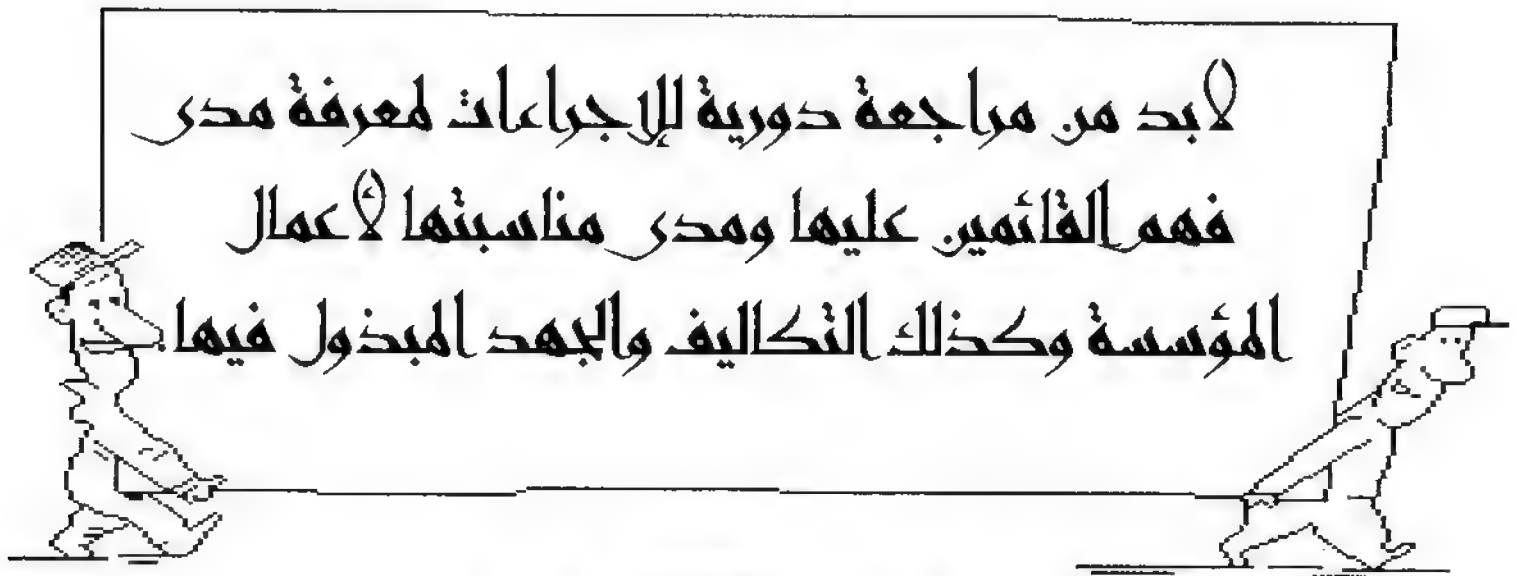 لابد من مراجعة دورية للإجراءات لمعرفة مدى
فهم القائمين عليها ومدى مناسبتها لأعمال
المؤسسة وكذلك التكاليف والجهد المبذول فيها